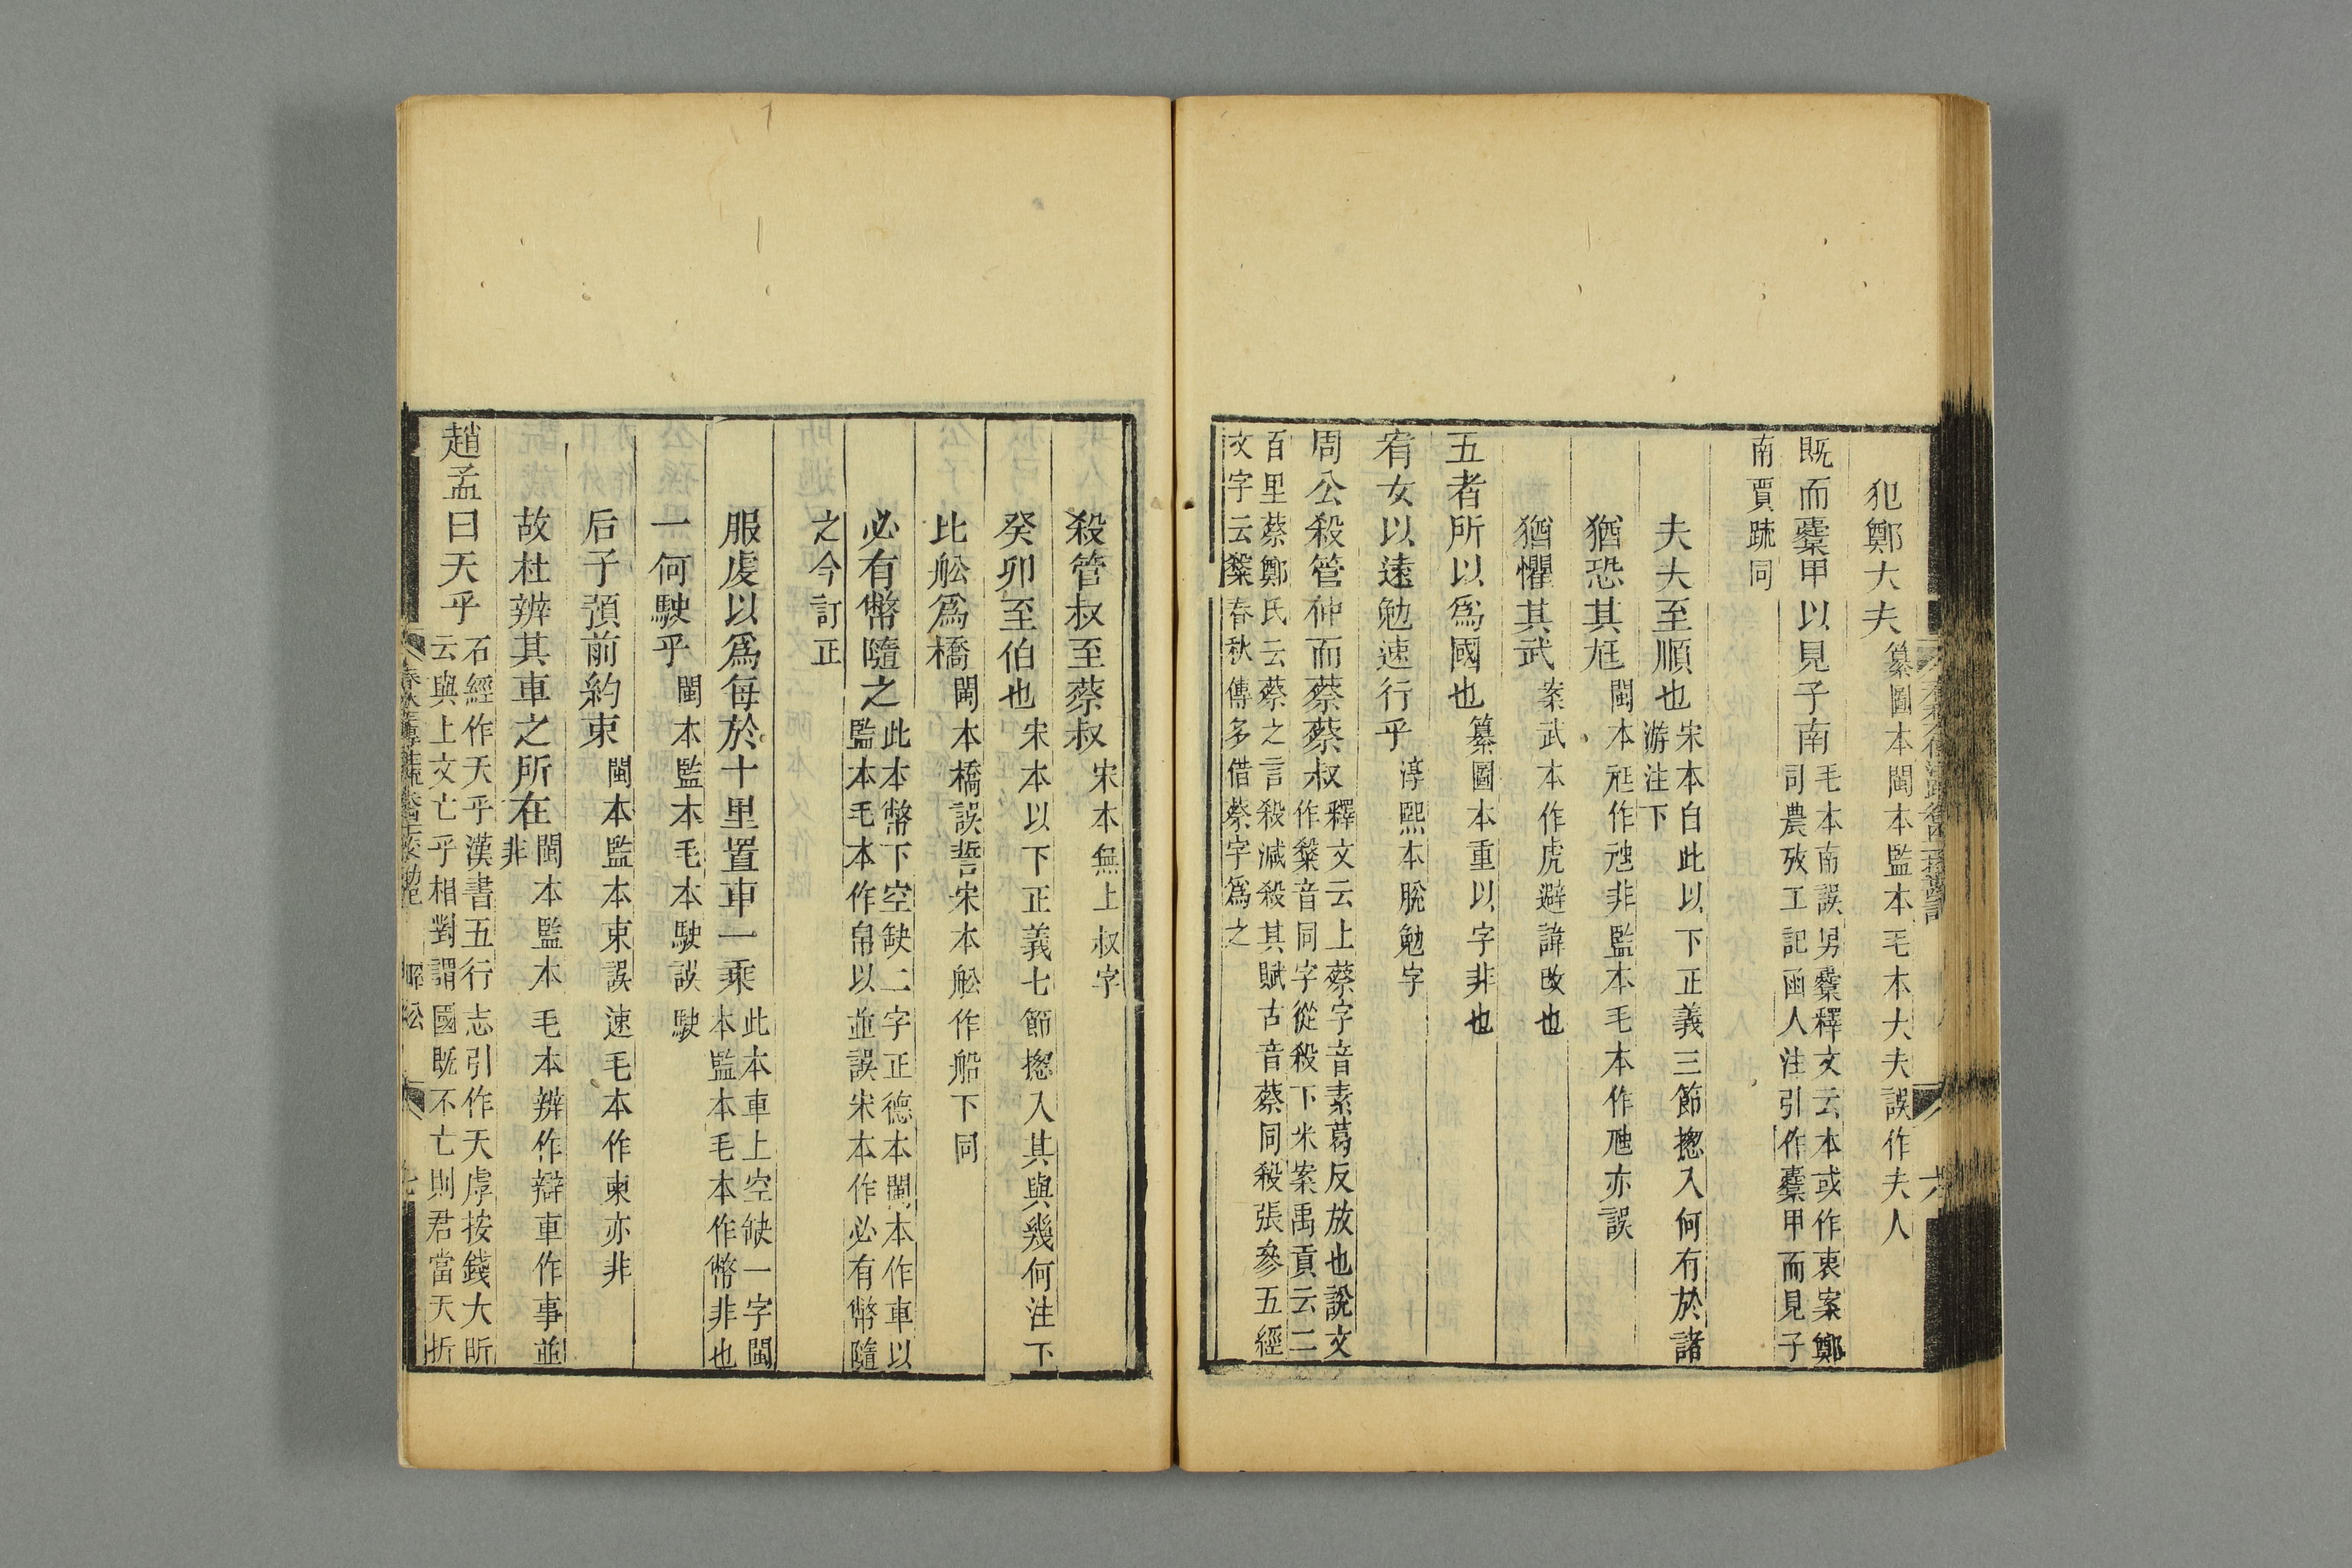 犯鄭大夫纂圖本閩本監本毛本大夫誤作夫人
既而櫜甲以見子南毛本南誤男櫜釋文云本或作衷案鄭
司農攷工記函人注引作櫜甲而見子
南賈䟽同
夫夫至順也宋本自此以下正義三節揔入何有於諸
游注下
猶恐其尫閩本尫作尩非監本毛本作尪亦誤
猶懼其武案武本作虎避諱改也
五者所以爲國也纂圖本重以字非也
宥女以遠勉速行乎淳熙本脫勉字
周公殺管仲而蔡蔡叔釋文云上蔡字音素葛反放也說文
作䊝音同字從殺下米案禹貢云二
百里蔡鄭氏云蔡之言殺減殺其賦古音蔡同殺張參五經
文字云䊝春秋傳多借蔡字爲之
殺管叔至蔡叔宋本無上叔字
癸卯至伯也宋本以下正義七節揔入其與幾何注下
比舩爲橋閩本橋誤㨷宋本舩作船下同
必有幣隨之此本幣下空缺二字正德本閩本作車以
監本毛本作帛以並誤宋本作必有幣隨
之今訂正
服虔以爲每於十里置車一乘此本車上空缺一字閩
本監本毛本作幣非也
一何駛乎閩本監本毛本駛誤駃
后子預前約束閩本監本束誤速毛本作東亦非
故杜辨其車之所在閩本監本毛本辨作辯車作事並
非
趙孟曰天乎石經作天乎漢書五行志引作天虖按錢大昕
云與上文亡乎相對謂國既不亡則君當天折